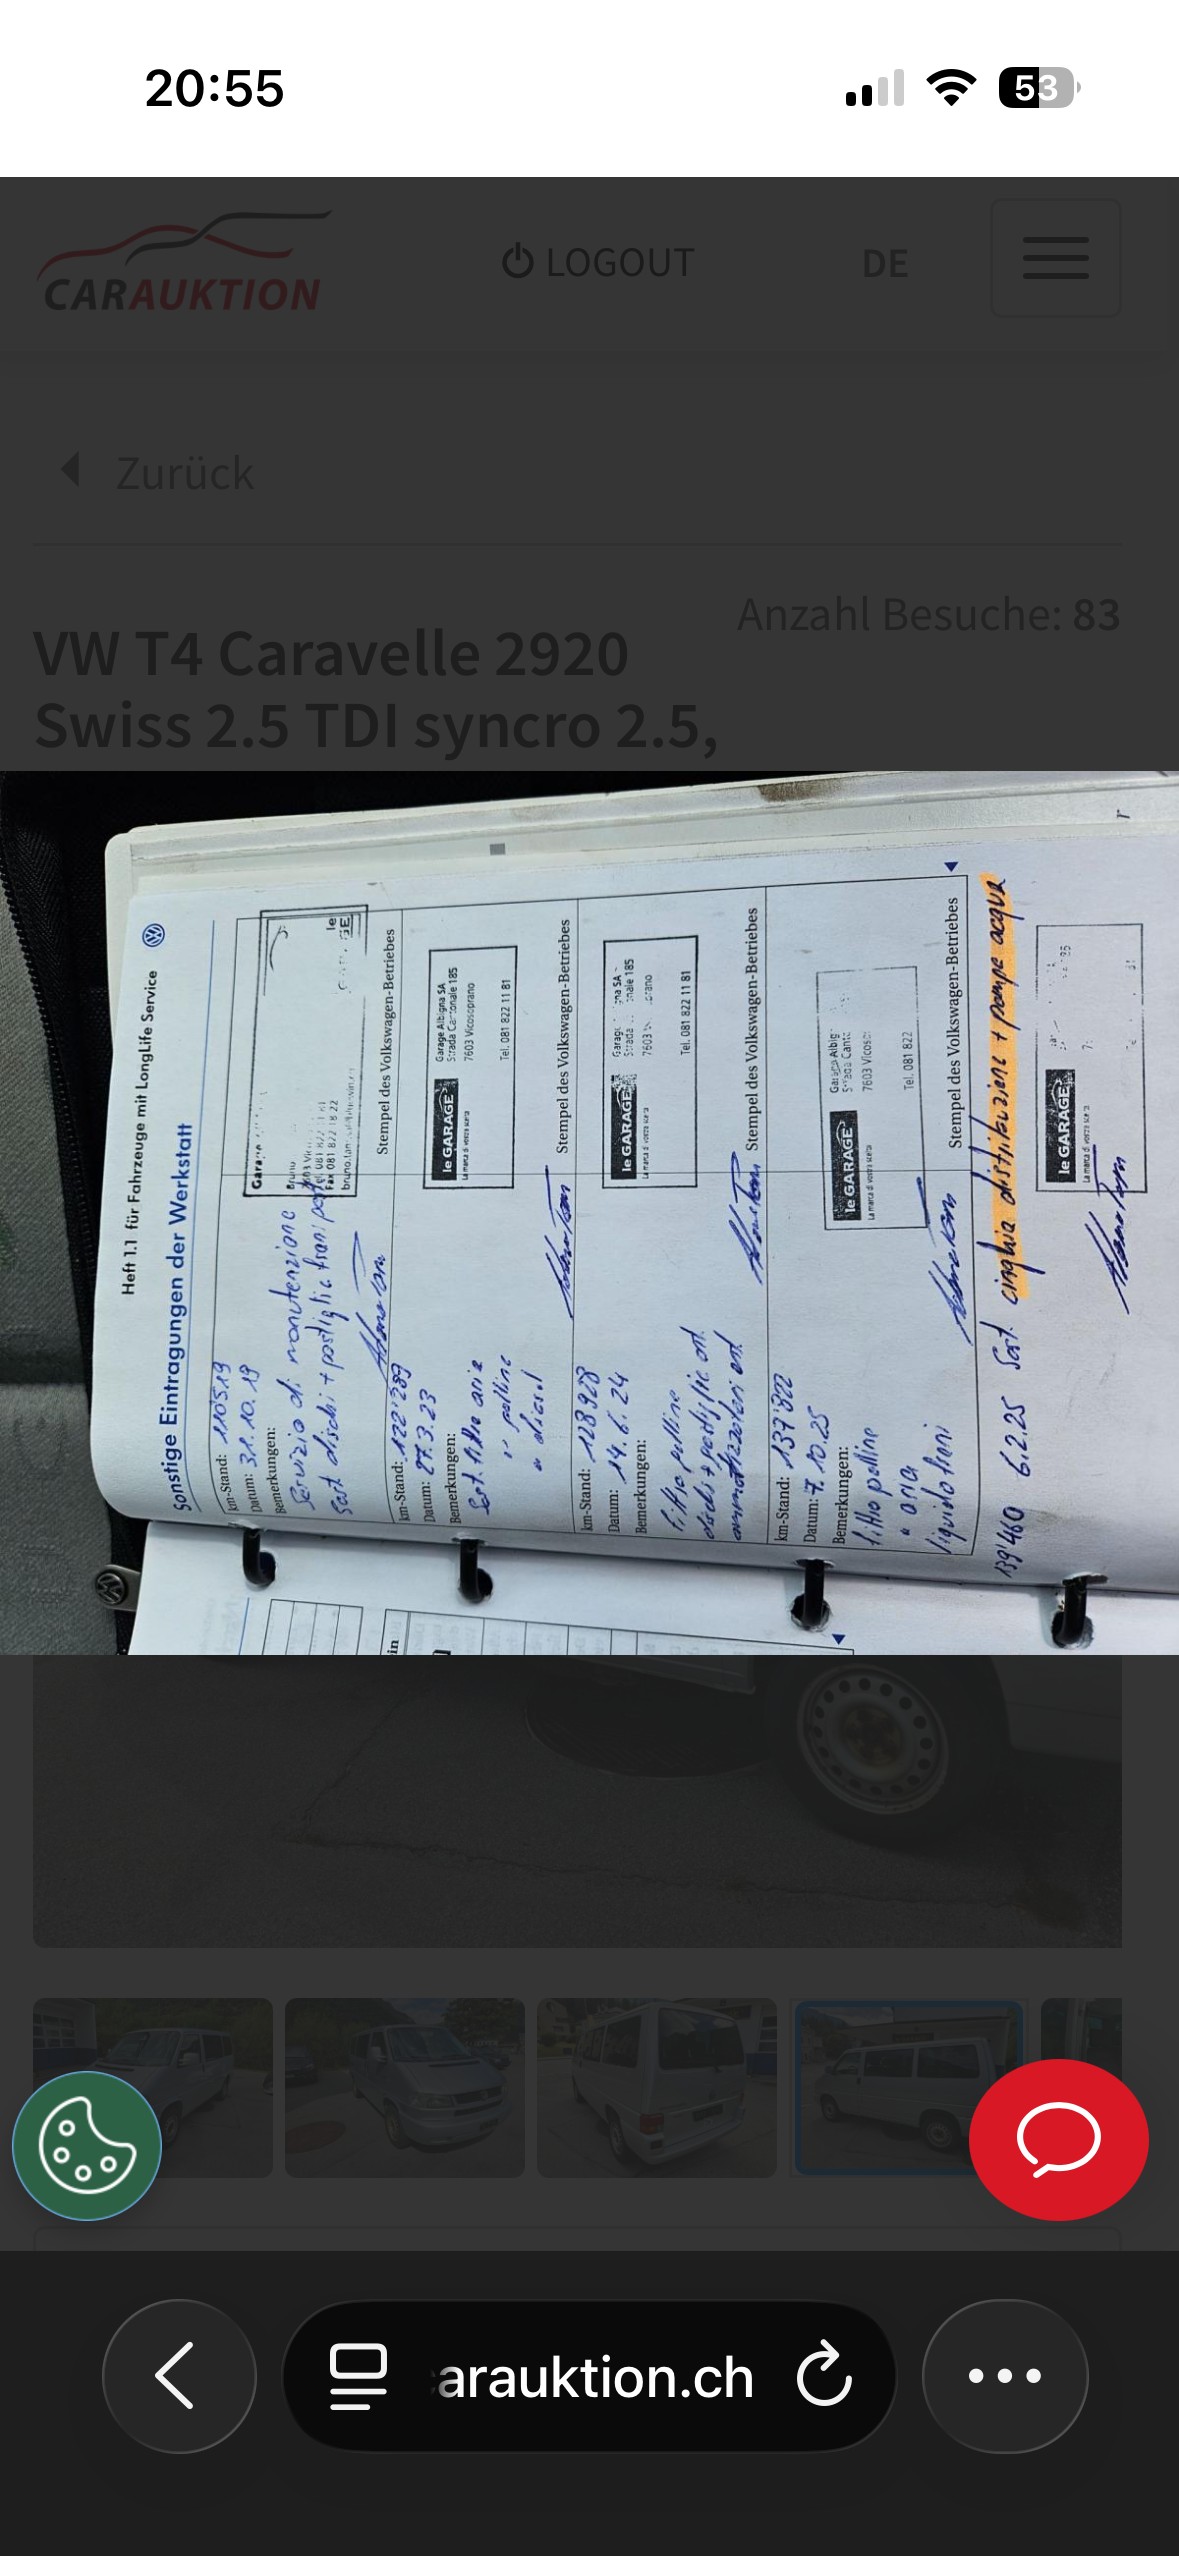 20:55
53
CARAUKTION
LOGOUT
DE
Zurück
Anzahl Besuche: 83
VW T4 Caravelle 2920
Swiss 2.5 TDI syncro 2.5,
Heft 1.1 für Fahrzeuge mit LongLife Service
Sonstige Eintragungen der Werkstatt
km-Stand: 110519
Datum: 31.10.19
Bemerkungen:
Servizio di manutenzione
Sost dischi + pastiglie freni post
Fax 081 822 18 22
Stempel des Volkswagen-Betriebes
km-Stand: 122'289
Datum: 27.3.23
Bemerkungen:
Sost. filtro aria
" polline
" diesel
le GARAGE
La marca di vostra scelta
Garage Albigna SA
Strada Cantonale 185
7603 Vicosoprano
Tel. 081 822 11 81
Stempel des Volkswagen-Betriebes
km-Stand: 128'928
Datum: 14.6.24
Bemerkungen:
Filtro polline
dischi + pastiglie ant.
ammortizzatori ant.
le GARAGE
La marca di vostra scelta
Strada
7603
Tel. 081 822 11 81
Stempel des Volkswagen-Betriebes
km-Stand: 137'822
Datum: 7.10.25
Bemerkungen:
filtro polline
" aria
liquido freni
le GARAGE
La marca di vostra scelta
7603
Tel. 081 822
Stempel des Volkswagen-Betriebes
139'460 6.2.25 Sost. cinghia distribuzione + pompa acqua
le GARAGE
arauktion.ch